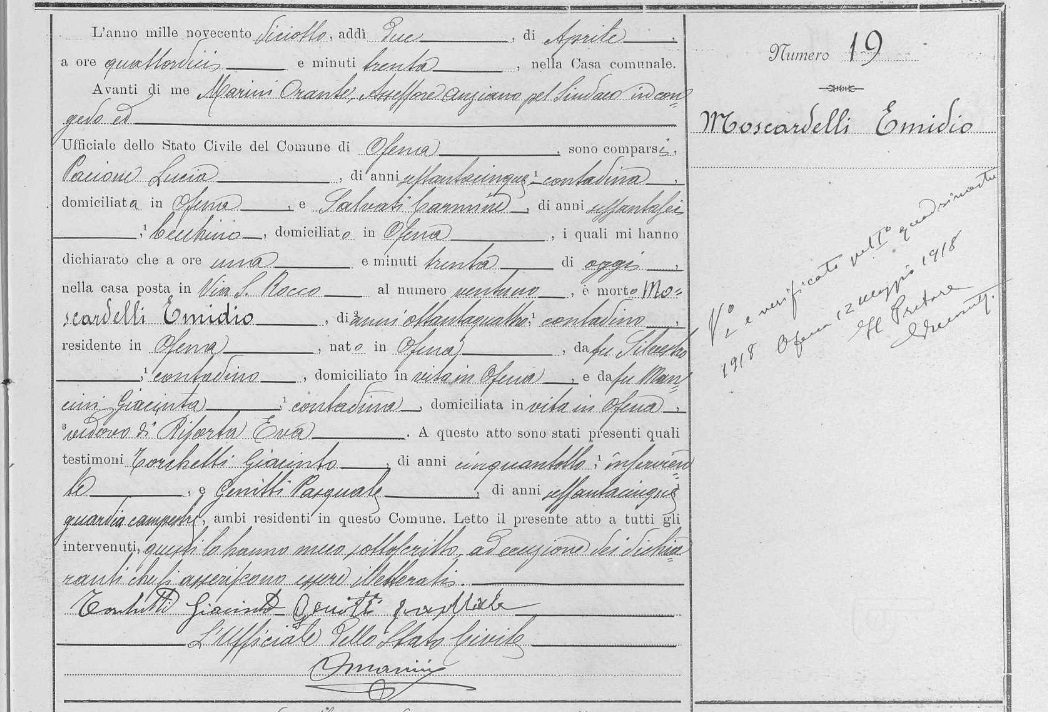 L'anno mille novecento diciotto, addì due, di Aprile,
a ore quattordici e minuti trenta, nella Casa comunale.
Avanti di me Marini Orante, Assessore anziano pel Sindaco in con-
gedo ed
Ufficiale dello Stato Civile del Comune di Ofena, sono comparsi,
Pacione Lucia, di anni settantacinque, contadina,
domiciliata in Ofena, e Salvati Carmine, di anni
, becchino, domiciliato in Ofena, i quali mi hanno
dichiarato che a ore una e minuti trenta di oggi,
nella casa posta in Via S. Rocco al numero ventuno, è morto Mo-
scardelli Emidio, di anni ottantaquattro, contadino,
residente in Ofena, nato in Ofena, da fu Silvestro
, contadino, domiciliato in vita in Ofena, e da fu Man-
cini Giacinta, contadina, domiciliata in vita in Ofena,
vedovo di Eva. A questo atto sono stati presenti quali
testimoni Torchetti Giacinto, di anni cinquantotto, inservien-
te, e Genitti Pasquale, di anni settantacinque,
guardia campestre, ambi residenti in questo Comune. Letto il presente atto a tutti gli
intervenuti, questi lo hanno meco sottoscritto, ad eccezione dei dichia-
ranti che si asseriscono essere illetterati.
Torchetti Giacinto Genitti Pasquale
L'Ufficiale dello Stato Civile
OMarini
Numero 19
Moscardelli Emidio
V° e verificato pel I° quadrimestre
1918 Ofena 12 maggio 1918
Il Pretore